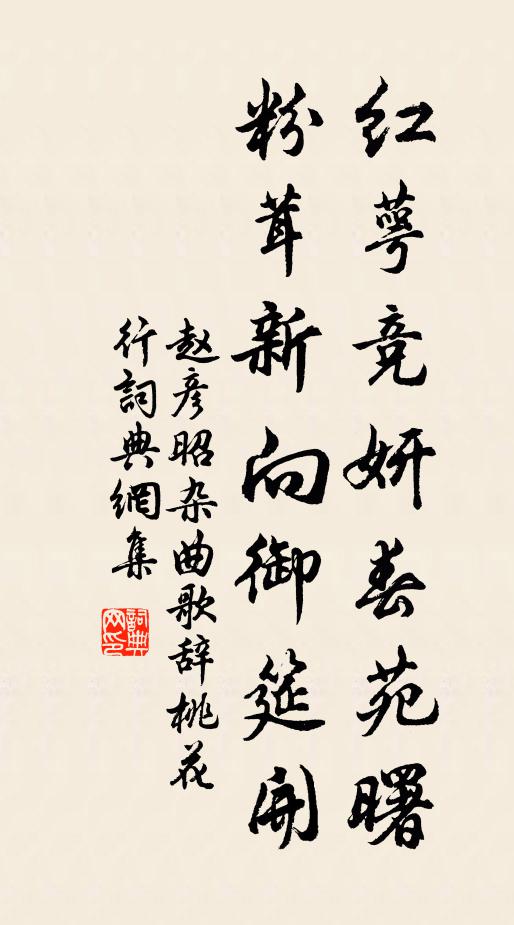 红萼竞妍春苑曙
粉茸新向御筵开
赵彦昭杂曲歌辞桃花
行詞典網集
詞典
网印